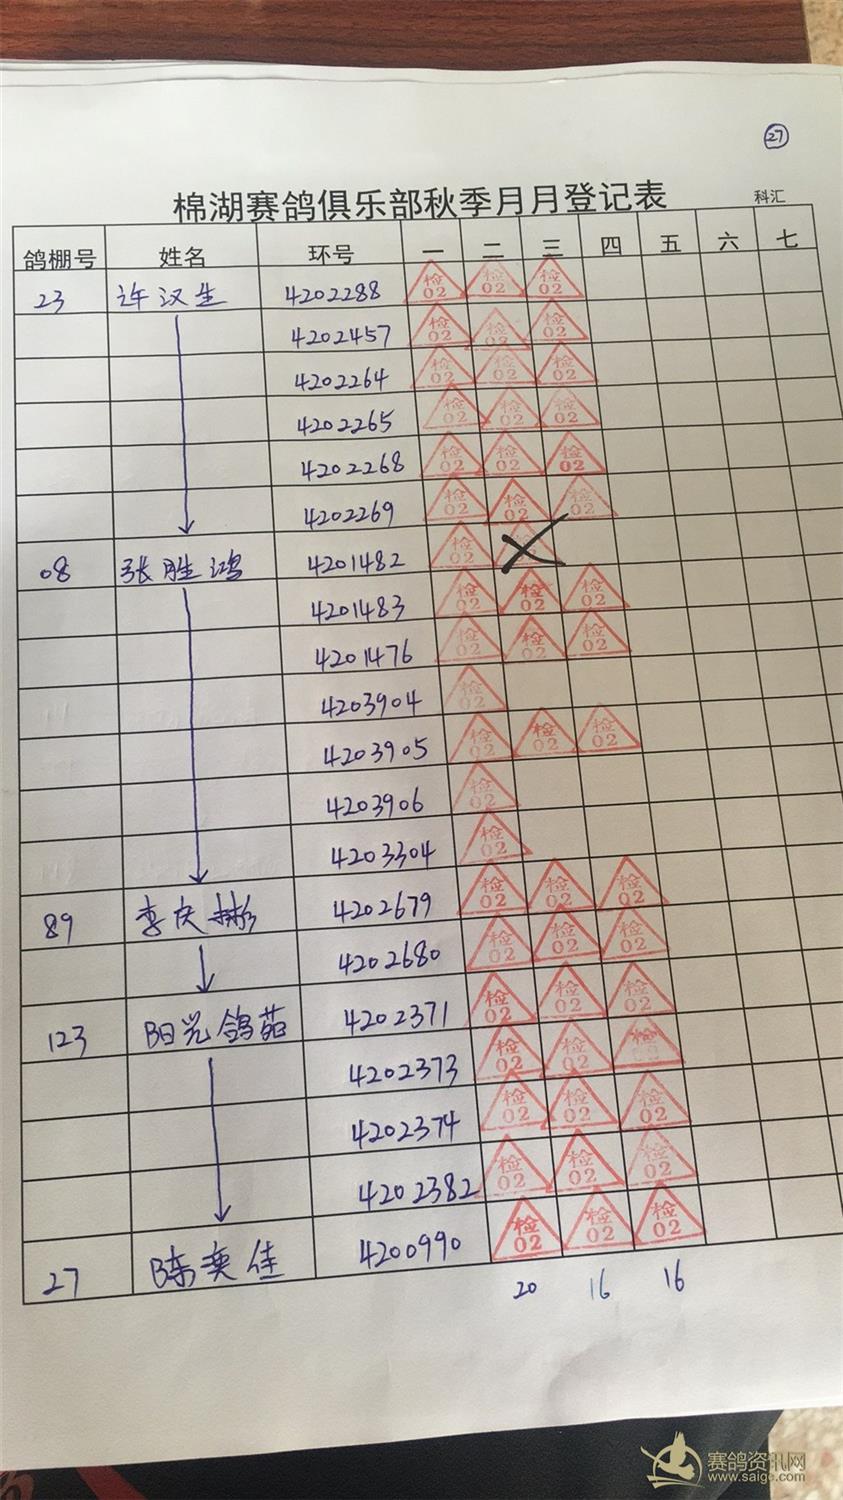 27
棉湖赛鸽俱乐部秋季月月登记表 科汇
鸽棚号 姓名 环号 一 二 三 四 五 六 七
23 许汉生 4202288 检02 检02 检02
4202457 检02 检02 检02
4202264 检02 检02 检02
4202265 检02 检02 检02
4202268 检02 检02 检02
4202269 检02 检02 检02
08 张胜鸿 4201482 检02 检02
4201483 检02 检02 检02
4201476 检02 检02 检02
4203904 检02
4203905 检02 检02 检02
4203906 检02
4203304 检02
89 李庆彬 4202679 检02 检02 检02
4202680 检02 检02 检02
123 阳光鸽苑 4202371 检02 检02 检02
4202373 检02 检02 检
4202374 检02 检02 检02
4202382 检02 检02 检02
27 陈奕佳 4200990 检02 检02 检02
20 16 16
赛鸽资讯网
www.saige.com